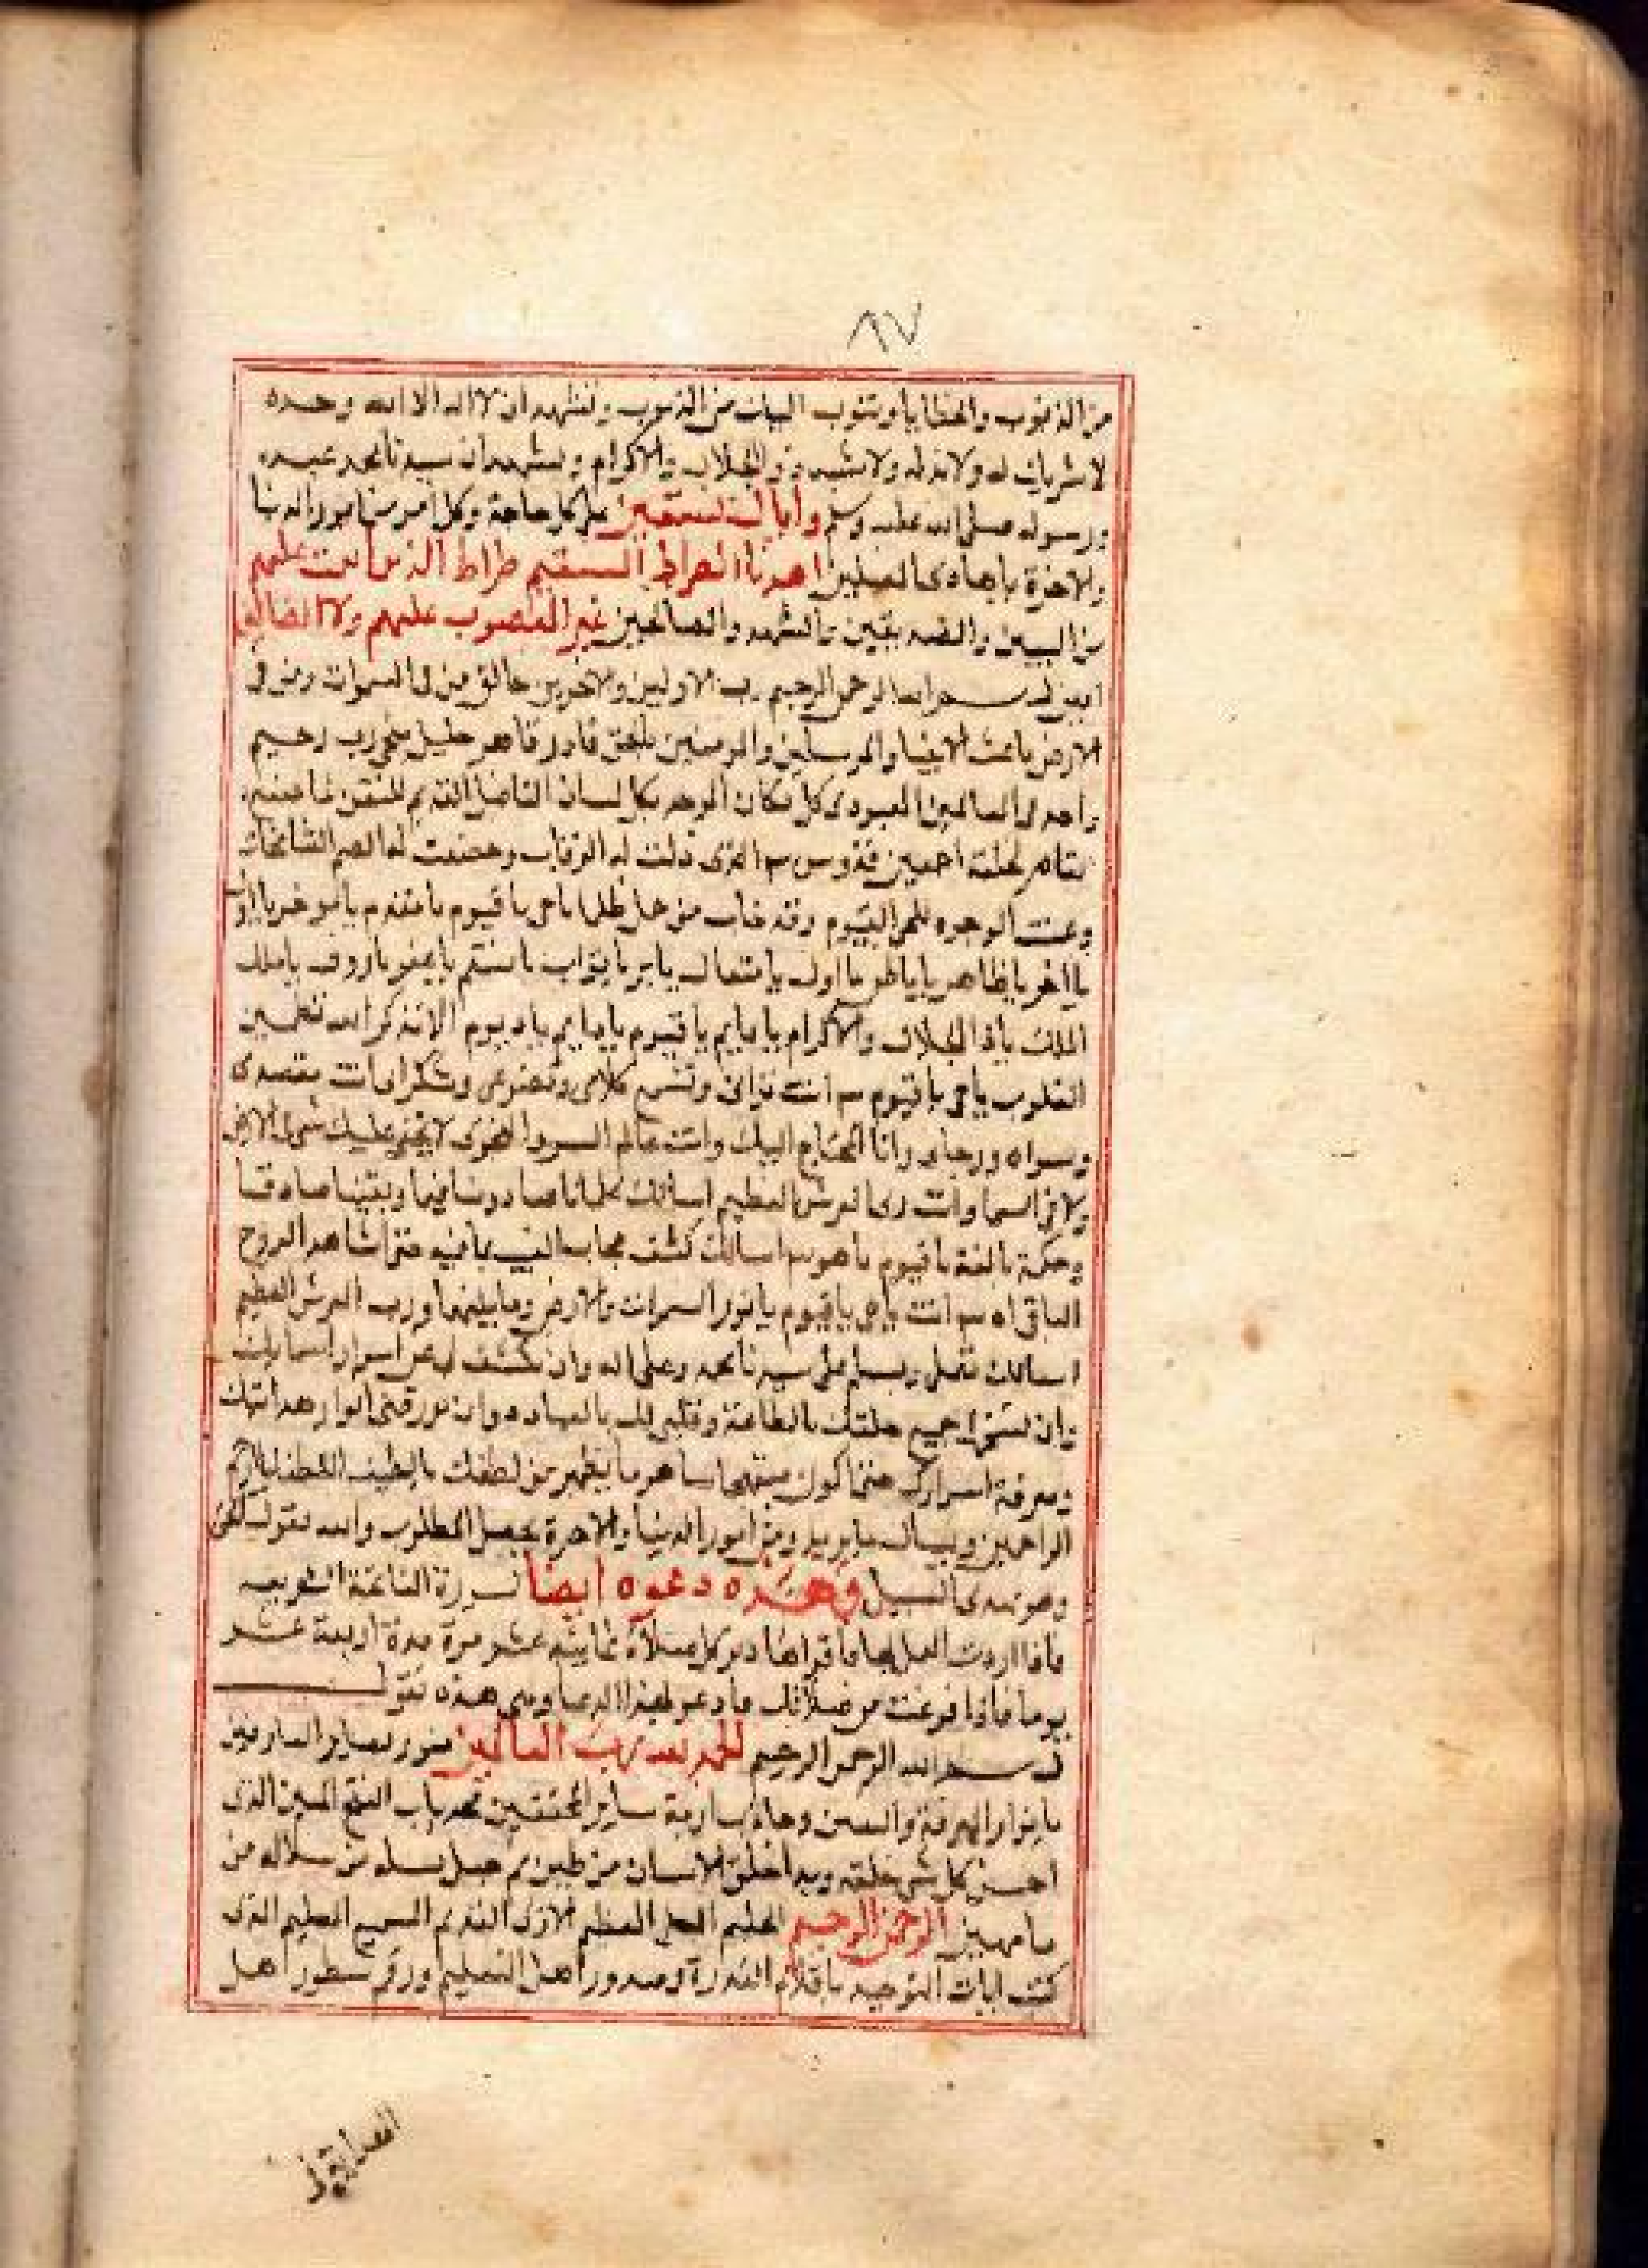 ٨٧
من الذنوب والخطايا ونتوب اليك من الذنوب ونشهد ان لا اله الا الله وحده
لا شريك له ولا ند له ولا شبيه ذو الجلال والاكرام ونشهد ان سيدنا محمد عبده
ورسوله صلى الله عليه وسلم واياك نستعين على كل حاجة وكل امر من امور الدنيا
والاخرة يا هادى المضلين اهدنا الصراط المستقيم صراط الذين انعمت عليهم
من النبيين والصديقين والشهد والصالحين غير المغضوب عليهم ولا الضالين
امين بسم الله الرحمن الرحيم رب الاولين والاخرين خالق من فى السموات ومن فى
الارض باعث الانبيا والمرسلين والمومنين بالحق قادر قاهر جليل رب رحيم
واحد فى العالمين المعبود فى كل مكان الموحد بكل لسان القديم
لخلقه اجمعين قدوس الذى ذلت له الرقاب وخضعت له الصم الشامخات
وعنت الوجوه للحى القيوم وقد خاب من حمل ظلما يا حى يا قيوم يا مقدم يا موخر يا اول
يا اخر يا ظاهر يا باطن يا اول يا متعال يا بر يا تواب يا منتقم يا عفو يا روف يا ملك
الملك يا ذا الجلال والاكرام يا دايم يا قيوم يا دايم يا ديوم الا بذكر الله تطمين
القلوب يا حى يا قيوم انت ترانى وتسمع كلامى وتضرعى وشكواى انت مقصدى
ورجاى وانا المحتاج اليك وانت عالم السر والنجوى لا يخفى عليك شى فى الارض
ولا فى السما وانت رب العرش العظيم اسالك ويقينا صادقا
وحكمة بالغة يا قيوم يا هو اسالك كشف حجاب الغيب حتى اشاهد الروح
الباقى انت يا حى يا قيوم يا نور السموات والارض وما بينهما ورب العرش العظيم
اسالك تصلى وتسلم على سيدنا محمد وعلى اله وان تكشف لى عن اسرار اسمايك
وان تسخر لى جميع خلقك بالطاعة وان ترزقنى انوار
ومعرفة اسرارك حتى اكون مبتهجا بما يظهر من لطفك يا لطيف يا ارحم
الراحمين ويسال ما يريد من امور الدنيا والاخرة يحصل المطلوب والله يقول الحق
وهو يهدى السبيل وهذه دعوه ايضا لسورة الفاتحة الشريفه
فاذا اردت العمل بها فاقراها دبر كل صلاة ثمانية عشر مرة مدة اربعة عشر
يوما فاذا فرغت من صلاتك فادعو لهذا الدعا وهى هذه تقول
بسم الله الرحمن الرحيم الحمد لله رب العالمين منور بصاير العارفين
بانوار المعرفة واليقين وجاذب ازمة ساير المحققين الفتح المبين الذى
احسن كل شى خلقه وبدا خلق الانسان من طين ثم جعل نسله من سلاله من
ما مهين الرحمن الرحيم الحليم العلى العظيم الازلى القديم السميع العليم الذى
كتب ايات التوحيد باقلام القدرة فى صدور اهل التعليم ورقم سطور اهل